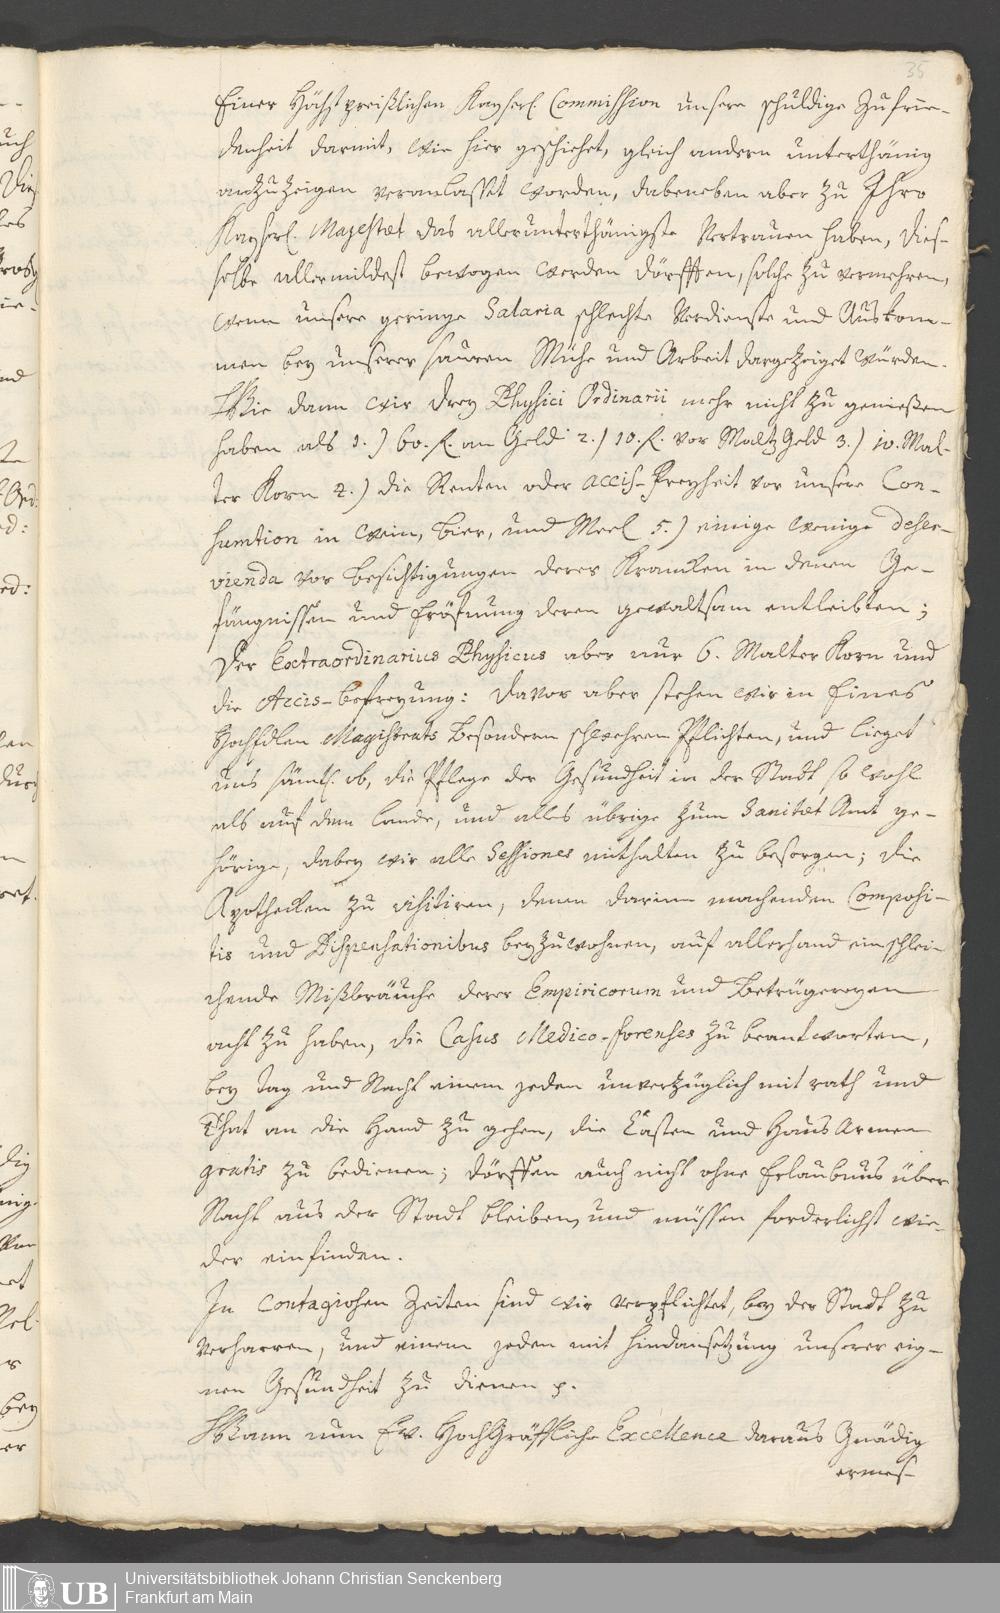 35
Einer Höchstpreißlichen Kayserl. Commission unsere schuldige Zufrie-
denheit darmit, wie hier geschiehet, gleich andern unterthänig
anzuzeigen veranlasset worden, dabeneben aber zu Ihro
Kayserl. Majestæt das allerunterthänigste Vertrauen haben, dies-
selbe allermildest bewogen werden dörfften, solche zu vermehren,
wenn unsere geringe Salaria schlechte Verdienste und Auskom-
men bey unserer sauren Mühe und Arbeit dargezeiget würden.
Wie dann wir drey Physici Ordinarii mehr nicht zu genießen
haben als 1.) 60. f. an Geld 2.) 10. f. vor Maltz Geld 3.) 10. Mal-
ter Korn 4.) die Renten oder accis-Freyheit vor unsere Con-
sumtion in Wein, Bier, und Meel 5.) einige wenige deser-
vienda vor Besichtigungen derer Krancken in denen Ge-
fängnissen und Eröfnung deren gewaltsam entleibten;
Der Extraordinarius Physicus aber nur 6. Malter Korn und
die Accis-befreyung: davor aber stehen wir in Eines
HochEdlen Magistrats besondern schwehren Pflichten, und lieget
uns sämtl. ob, die Pflege der Gesundheit in der Stadt so wohl
als auf dem Lande, und alles übrige zum Sanitæt Amt ge-
hörige, dabey wir alle Sessiones mithalten zu besorgen; die
Apothecken zu visitiren, denen darinn machenden Composi-
tis und Dispensationibus beyzuwohnen, auf allerhand einschlei-
chende Mißbräuche derer Empiricorum und Betrügereyen
acht zu haben, die Casus Medico-forenses zu beantworten,
bey Tag und Nacht einem jeden unverzüglich mit rath und
That an die Hand zu gehen, die Casten und Haus Armen
gratis zu bedienen; dörffen auch nicht ohne Erlaubnus über
Nacht aus der Stadt bleiben, und müssen forderlichst wie-
der einfinden.
In contagiosen Zeiten sind wir verpflichtet, bey der Stadt zu
verharren, und einem jeden mit hindansetzung unserer eig-
nen Gesundheit zu dienen p.
Wann nun Ew. HochGräffliche Excellence daraus Gnädig
ermes-
UB
Universitätsbibliothek Johann Christian Senckenberg
Frankfurt am Main